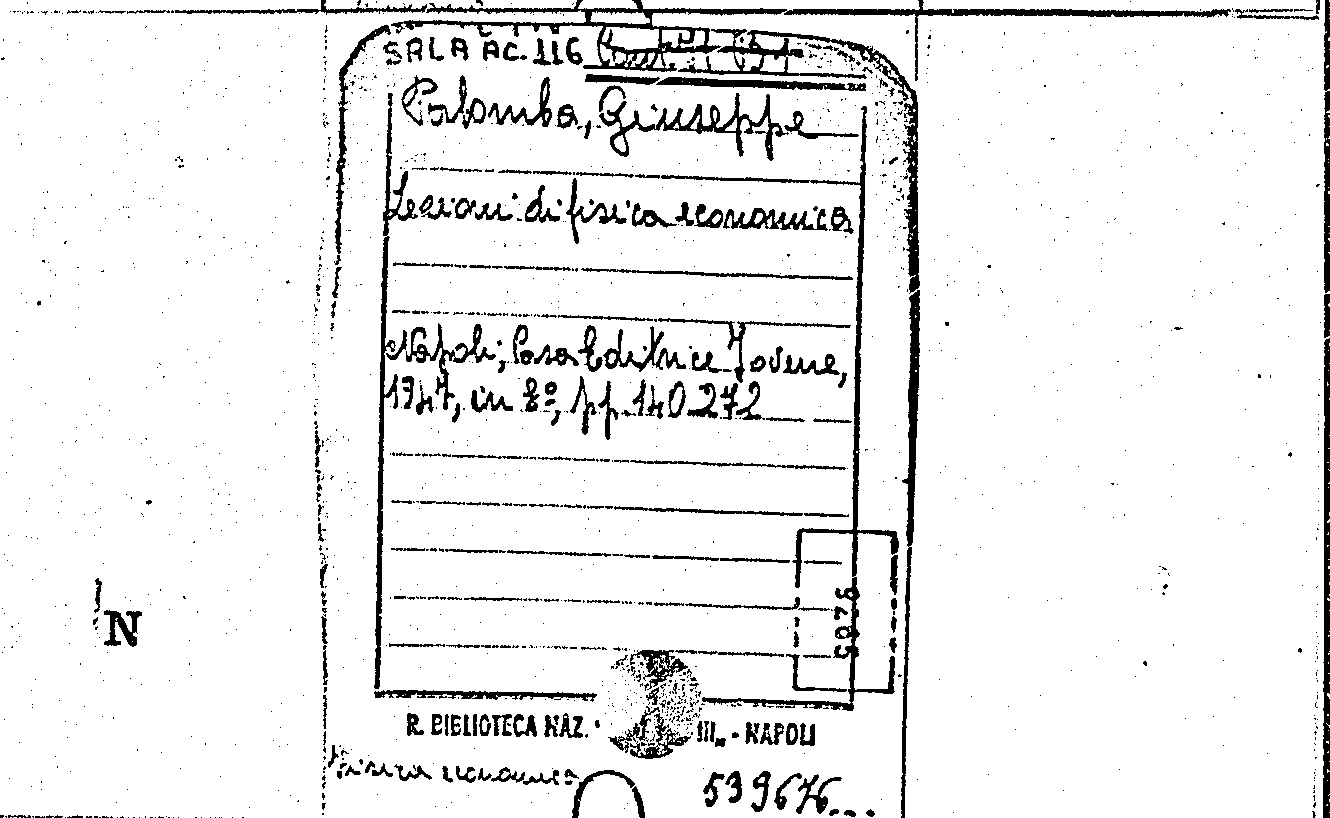 SALA AC. 116
Palomba, Giuseppe
Lezioni di fisica economica
Napoli, Casa Editrice Jovene,
1947, in 8º, pp. 140.272
5076
N
R. BIBLIOTECA NAZ. III„ - NAPOLI
Fisica economica
539676